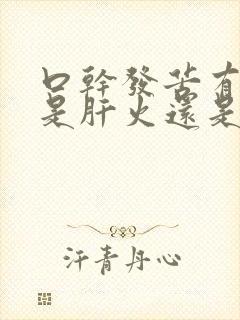 口幹發苦有
是肝火還是
汗青丹心